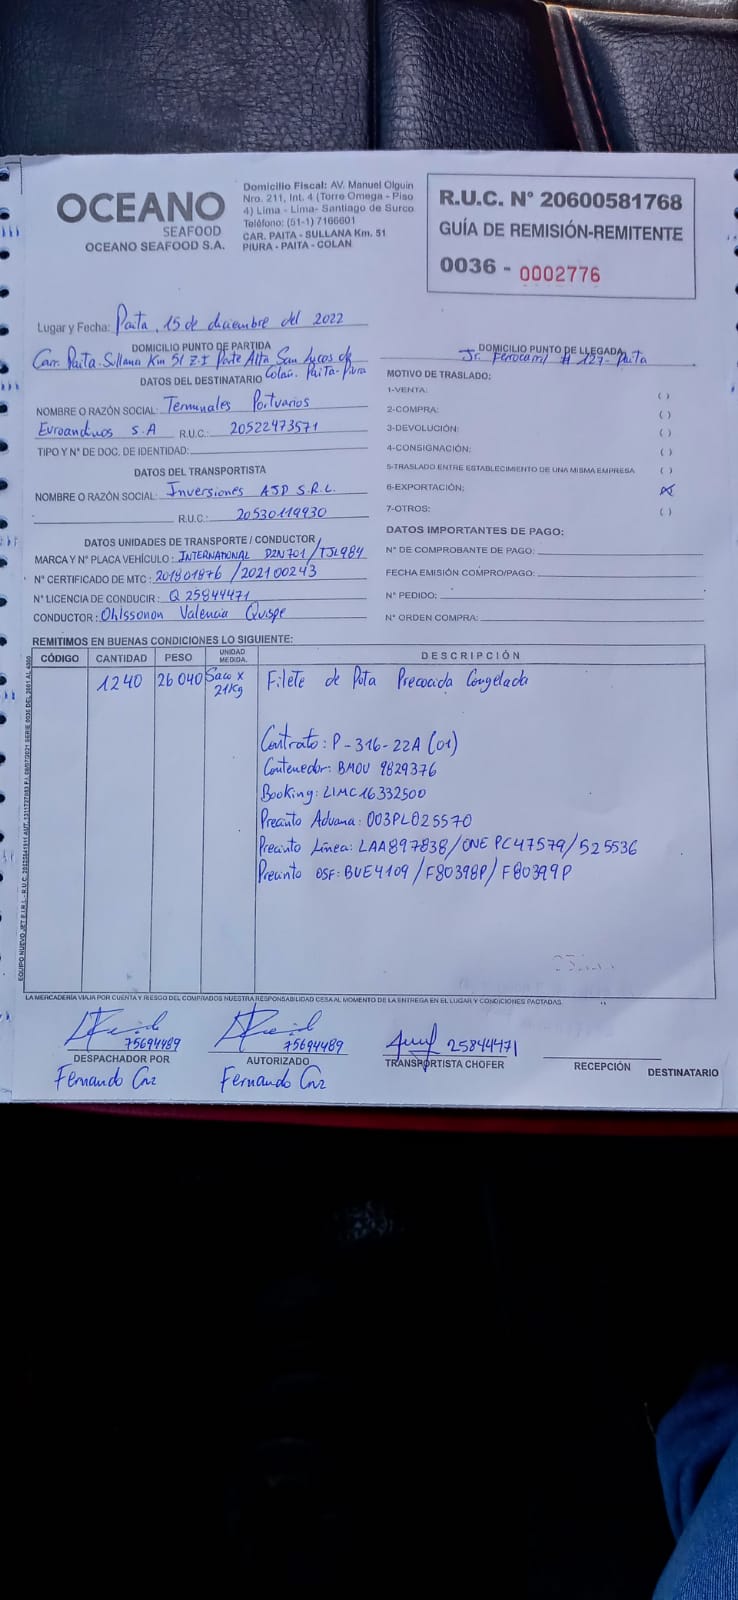 OCEANO
SEAFOOD
OCEANO SEAFOOD S.A.
Domicilio Fiscal: AV. Manuel Olguin
Nro. 211, Int. 4 (Torre Omega - Piso
4) Lima - Lima- Santiago de Surco
Teléfono: (51-1) 7166601
CAR. PAITA - SULLANA Km. 51
PIURA - PAITA - COLAN
R.U.C. N° 20600581768
GUÍA DE REMISIÓN-REMITENTE
0036 - 0002776
Lugar y Fecha: Paita, 15 de diciembre del 2022
DOMICILIO PUNTO DE PARTIDA
Carr. Paita-Sullana Km 51 Z.I Parte Alta San Lucas de
Colan. Paita-Piura
DOMICILIO PUNTO DE LLEGADA
Jr. Ferrocarril # 127- Paita
DATOS DEL DESTINATARIO
NOMBRE O RAZÓN SOCIAL: Terminales Portuarios
Euroandinos S.A R.U.C.: 20522473571
TIPO Y N° DE DOC. DE IDENTIDAD:
DATOS DEL TRANSPORTISTA
NOMBRE O RAZÓN SOCIAL: Inversiones ASD S.R.L.
R.U.C.: 20530119930
DATOS UNIDADES DE TRANSPORTE / CONDUCTOR
MARCA Y N° PLACA VEHÍCULO: INTERNATIONAL D2N701/TJL984
N° CERTIFICADO DE MTC: 201801876 /202100243
N° LICENCIA DE CONDUCIR: Q 25844471
CONDUCTOR: Ohlssonon Valencia Quispe
MOTIVO DE TRASLADO:
1-VENTA: ( )
2-COMPRA: ( )
3-DEVOLUCIÓN: ( )
4-CONSIGNACIÓN: ( )
5-TRASLADO ENTRE ESTABLECIMIENTO DE UNA MISMA EMPRESA ( )
6-EXPORTACIÓN: (X)
7-OTROS: ( )
DATOS IMPORTANTES DE PAGO:
N° DE COMPROBANTE DE PAGO:
FECHA EMISIÓN COMPRO/PAGO:
N° PEDIDO:
N° ORDEN COMPRA:
REMITIMOS EN BUENAS CONDICIONES LO SIGUIENTE:
CÓDIGO CANTIDAD PESO UNIDAD MEDIDA. DESCRIPCIÓN
1240 26 040 Saco x 21Kg Filete de Pota Precocida Congelada
Contrato: P-316-22A (01)
Contenedor: BMOU 9829376
Booking: LIMC16332500
Precinto Aduana: 003PL025570
Precinto Línea: LAA897838/ONE PC47579/525536
Precinto OSF: BUE4109 /F80398P/ F80399P
LA MERCADERÍA VIAJA POR CUENTA Y RIESGO DEL COMPRADOS NUESTRA RESPONSABILIDAD CESA AL MOMENTO DE LA ENTREGA EN EL LUGAR Y CONDICIONES PACTADAS
75694489
DESPACHADOR POR
Fernando Cruz
75694489
AUTORIZADO
Fernando Cruz
25844471
TRANSPORTISTA CHOFER
RECEPCIÓN
DESTINATARIO